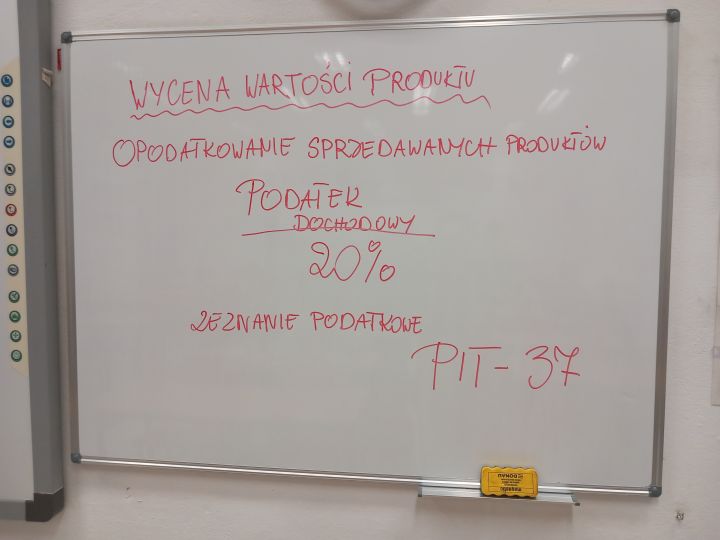 WYCENA WARTOŚCI PRODUKTU
OPODATKOWANIE SPRZEDAWANYCH PRODUKTÓW
PODATEK
DOCHODOWY
20%
ZEZNANIE PODATKOWE
PIT-37
DONAU